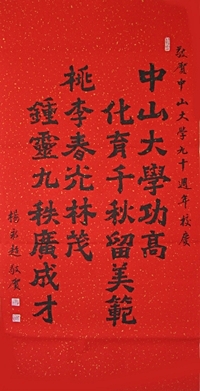 敬賀中山大學九十週年校慶
中山大學功高
化育千秋留美範
桃李春光林茂
鍾靈九秩廣成才
敬賀